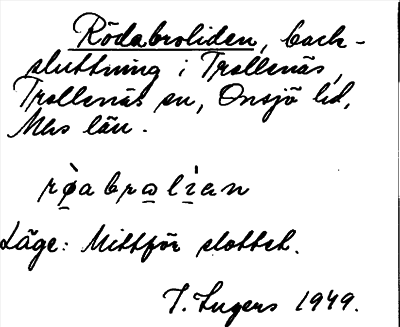 Rödabroliden, back-
sluttning i Trollenäs,
Trollenäs sn, Onsjö hd,
Mhs län.
rø̀abroli̇̀an
Läge: Mittför slottet.
I. Ingers 1949.